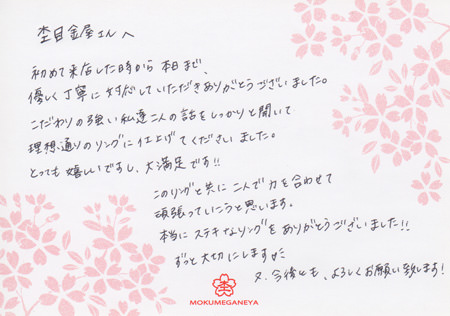 杢目金屋さんへ
初めて来店した時から本日まで、
優しく丁寧に対応していただきありがとうございました。
こだわりの強い私達二人の話をしっかりと聞いて
理想通りのリングに仕上げてくださいました。
とっても嬉しいですし、大満足です!!
このリングと共に二人で力を合わせて
頑張っていこうと思います。
本当にステキなリングをありがとうございました!!
ずっと大切にします
又、今後とも、よろしくお願い致します!
MOKUMEGANEYA